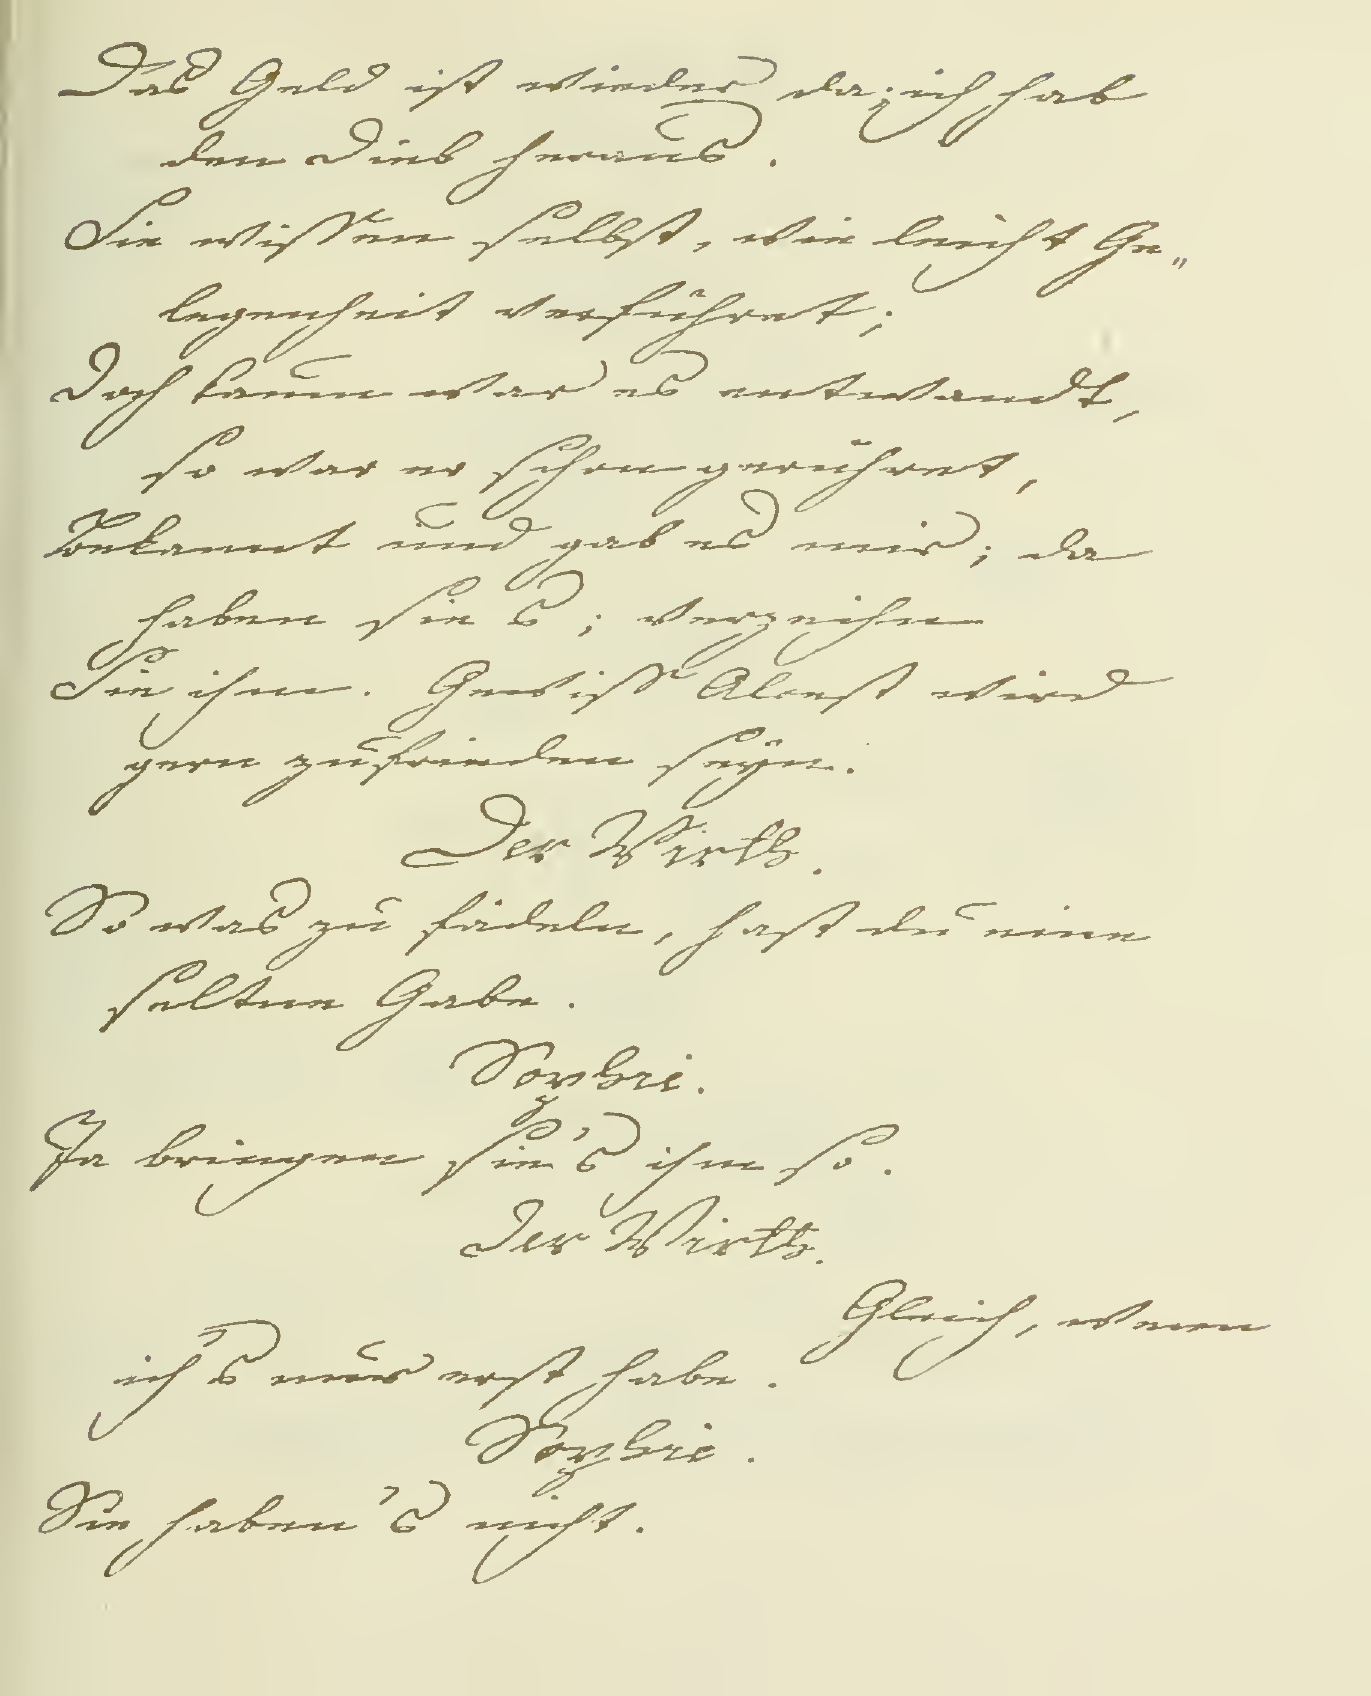 Das Geld ist wieder da; ich hab
den Dieb heraus.
Sie wissen selbst, wie leicht Ge„
legenheit verführet;
Doch kaum war es entwandt,
so war er schon gerühret,
Bekannt und gab es mir; da
haben sie s; verzeihn
Sie ihm. Gewiss Alcest wird
gern zufrieden seyn.
Der Wirth.
So was zu fädeln, hast du eine
seltne Gabe.
Sophie.
Ja bringen sie's ihm so.
Der Wirth.
Gleich, wenn
ich's nur erst habe.
Sophie.
Sie haben's nicht.